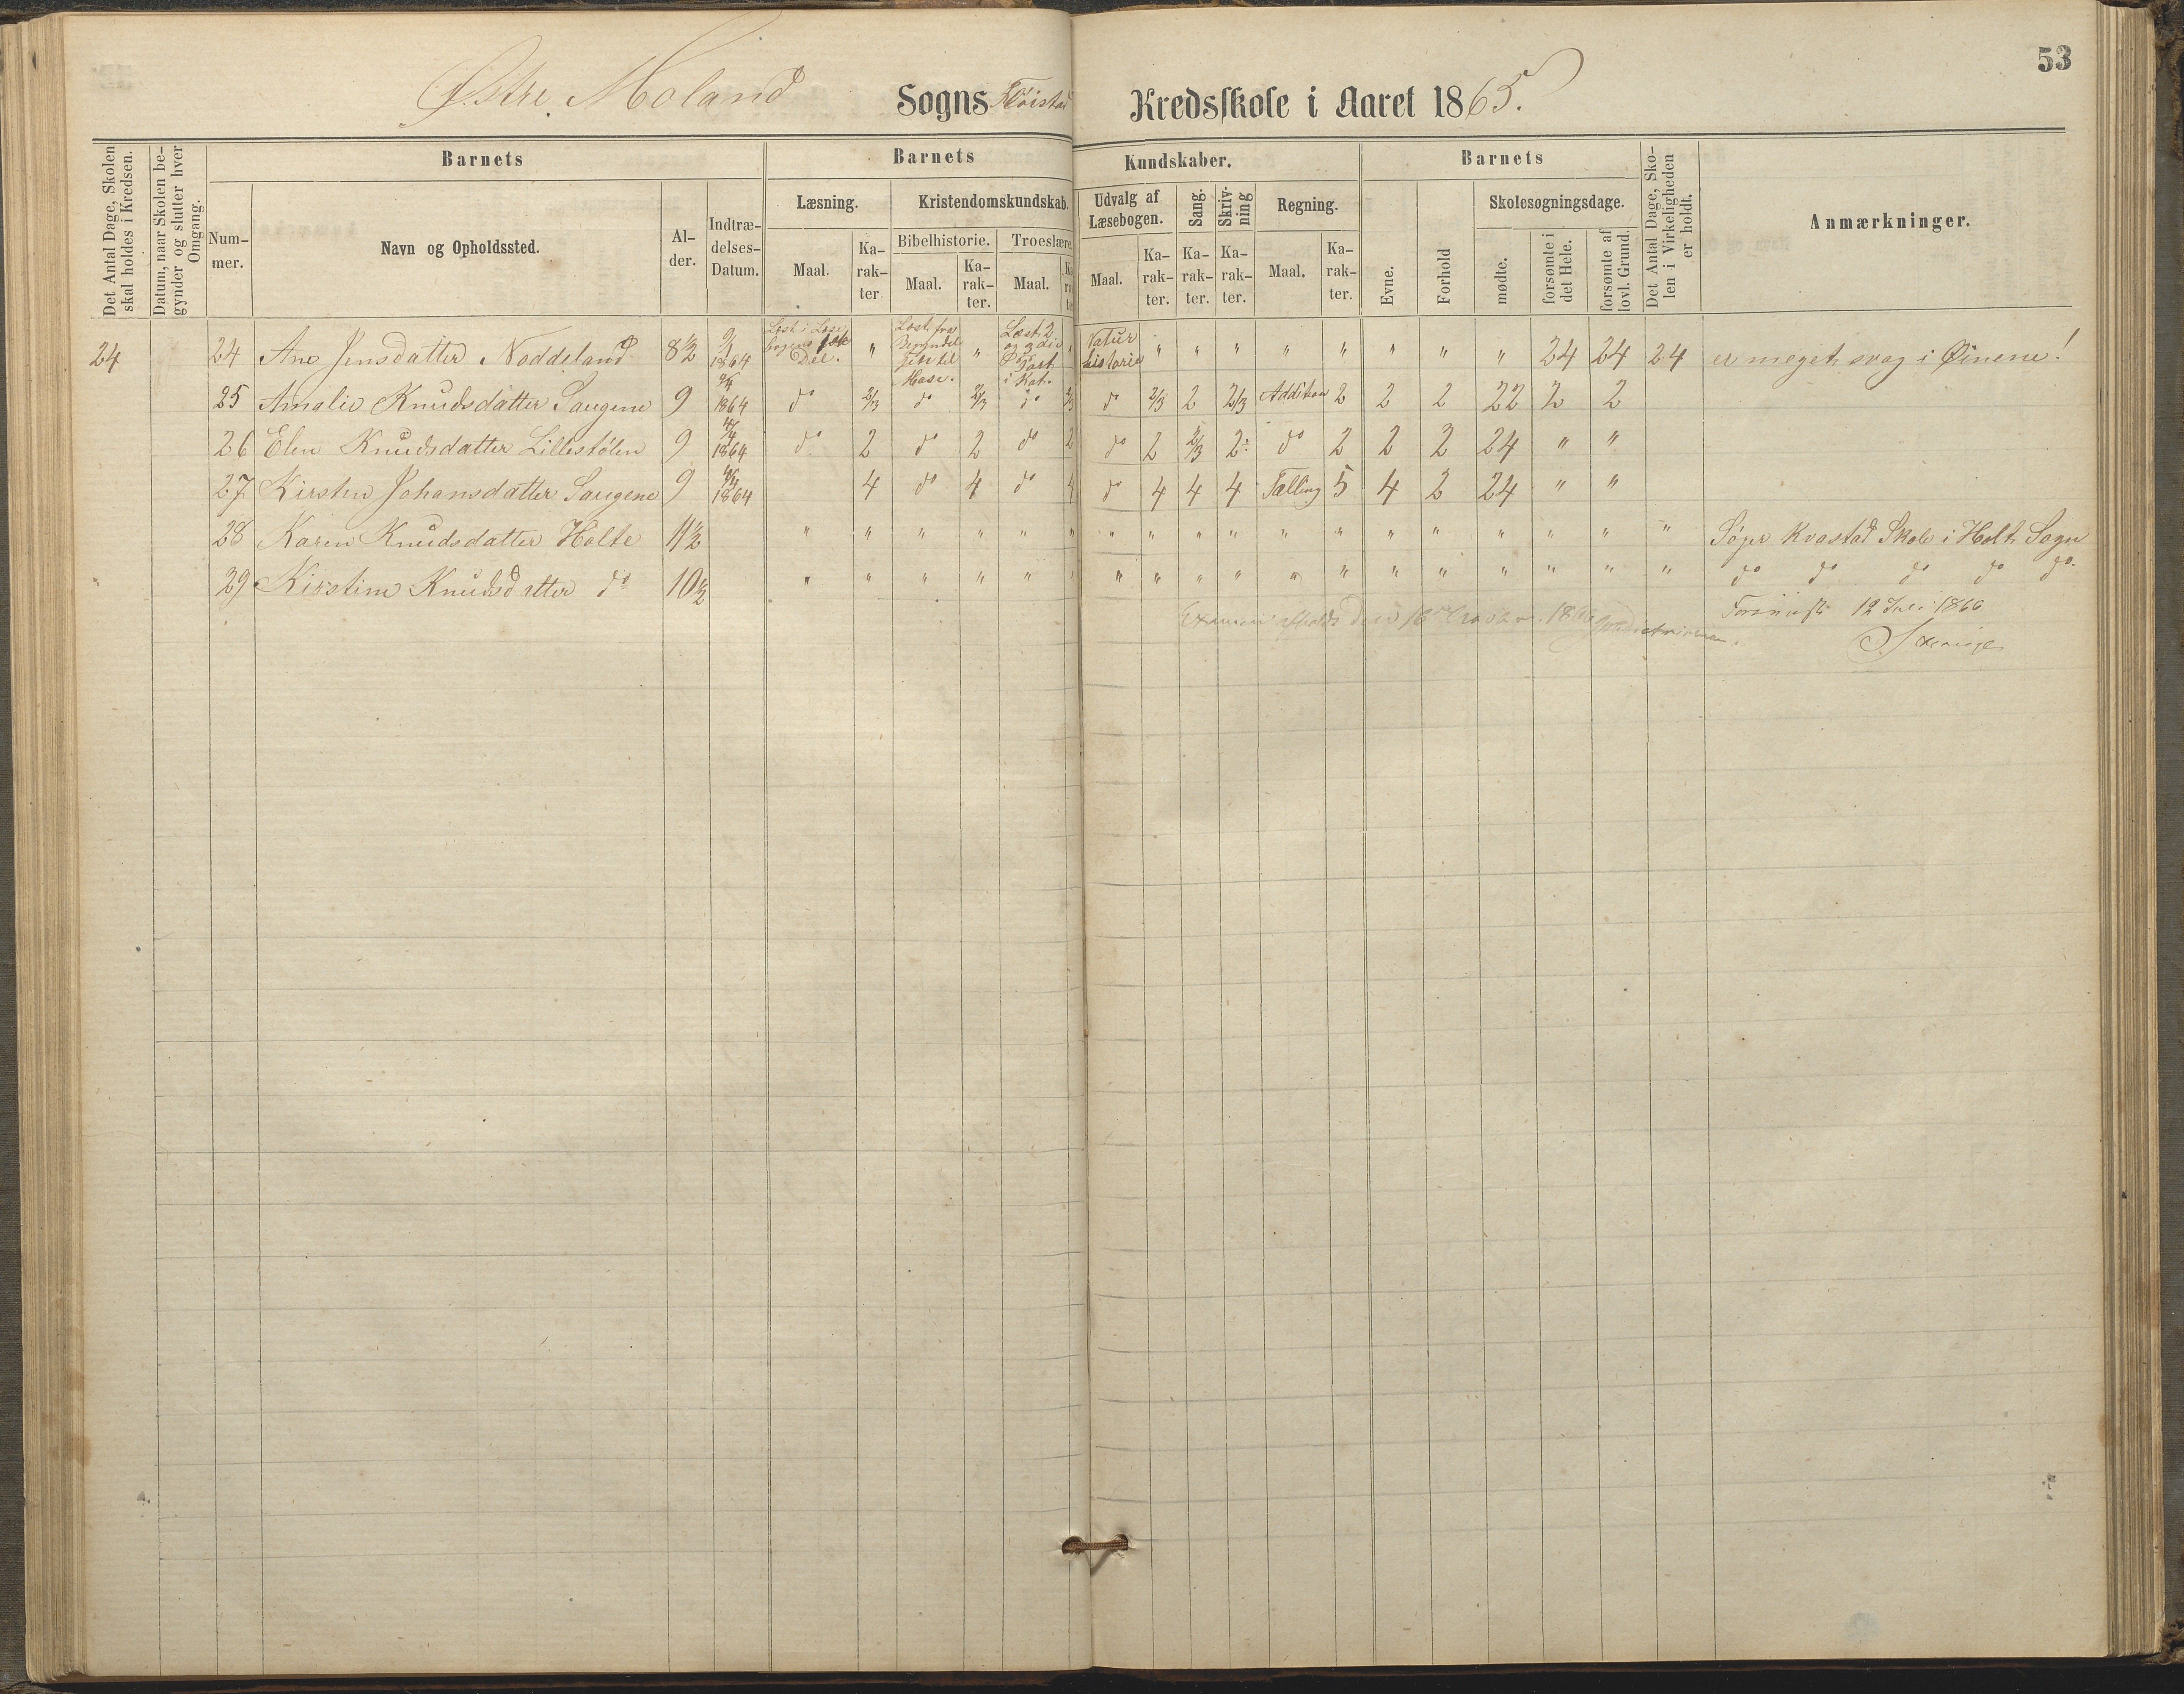 53
Østre Moland Sogns Kredsskole i Aaret 1865.
Det Antal Dage, Skolen skal holdes i Kredsen.
Datum, naar Skolen begynder og slutter hver Omgang.
Barnets
Barnets
Kundskaber.
Barnets
Det Antal Dage, Skolen i Virkeligheden er holdt.
Anmærkninger.
Nummer.
Navn og Opholdssted.
Alder.
Indtrædelses-Datum.
Læsning.
Kristendomskundskab.
Udvalg af Læsebogen.
Sang.
Skrivning
Regning.
Evne.
Forhold
Skolesøgningsdage.
Bibelhistorie.
Troeslære.
Maal.
Karakter.
Maal.
Karakter.
Maal.
Karakter
Maal.
Karakter.
Karakter.
Karakter.
Maal.
Karakter.
mødte.
forsømte i det Hele.
forsømte af lovl. Grund.
24 24 Ane Jensdatter Noddeland 8½ 1864 Læst i Læsebogens Del. " Læst fra " Læst 2 og 3 " Natur historie " " " " " " " " 24 24 24 er meget svag i Øinene!
25 Amalie Knudsdatter Saugene 9 1864 do 2/3 do 2/3 do 2/3 do 2/3 2 2/3 Addition 2 2 2 22 2 2
26 Elen Knudsdatter Lillestølen 9 1864 do 2 do 2 do 2 do 2 2/3 2 do 2 2 2 24 " "
27 Kirsten Johansdatter Saugene 9 1864 4 do 4 do 4 do 4 4 4 Tælling 5 4 2 24 " "
28 Karen Knudsdatter Holte 11½ " " " " " " " " " " " " " " " " " " Søger Kvastad Skole i Holt Sogn
29 Kirstine Knudsdatter do 10½ " " " " " " " " " " " " " " " " " " do do do do do.
Examen afholdt den 1866
12 Juli 1866